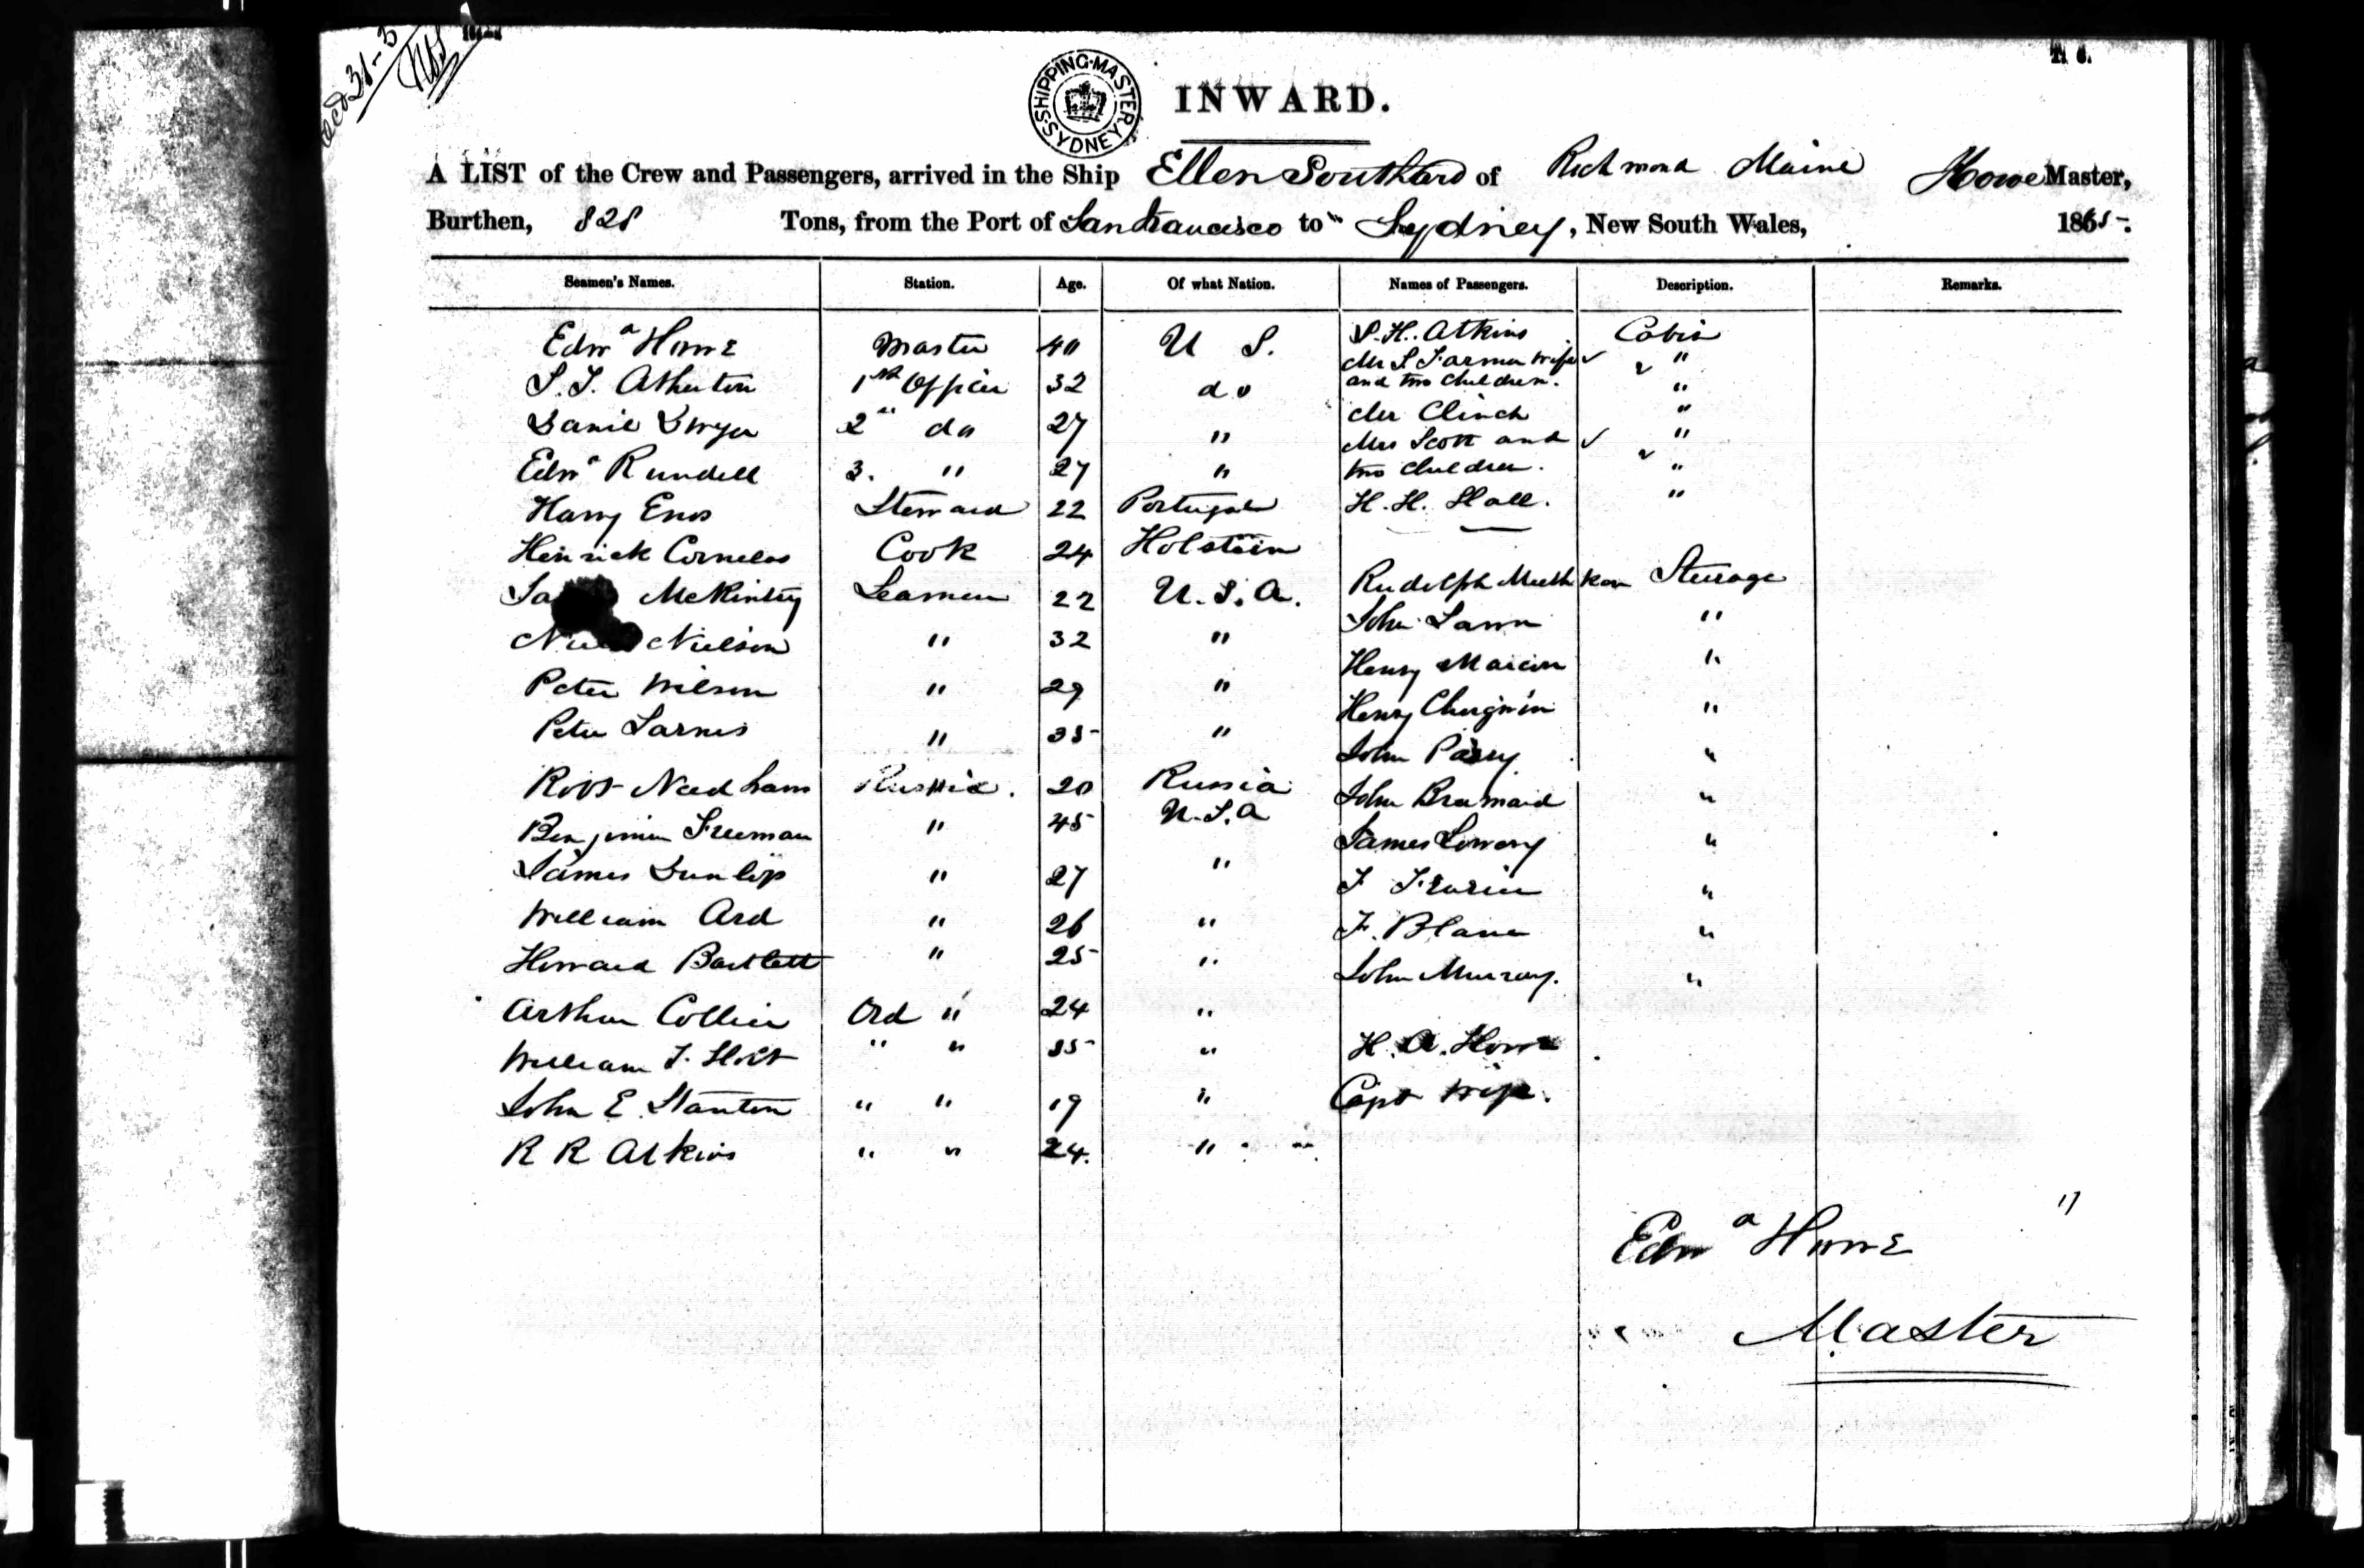 SHIPPING·MASTER·SYDNEY
INWARD.
A LIST of the Crew and Passengers, arrived in the Ship Ellen Southard of Richmond Maine Howe Master,
Burthen, 828 Tons, from the Port of San Francisco to Sydney, New South Wales, 1865.
Seamen's Names. Station. Age. Of what Nation. Names of Passengers. Description. Remarks.
Edwd Howe Master 40 U S. S. H. Atkins Cabin
Mr S Farmer wife "
S. S. Atherton 1st Officer 32 do and two children. "
Mr Clinch "
Daniel Dwyer 2nd do 27 " Mrs Scott and "
Edwd Rundell 3. " 27 " two children. "
Harry Enos Steward 22 Portugal H. H. Hall. "
Heinrick Cornelos Cook 24 Holstein
McKinley Seamen 22 U. S. A. Rudolph Steerage
Nielson " 32 " John "
Peter Wilson " 29 " Henry "
Peter " 35 " Henry "
John Parry "
Robt Needham Russia. 20 Russia John "
Benjimin Freeman " 45 U.S.A James Lowery "
James Dunlop " 27 " F "
William Ard " 26 " F. "
Howard Bartlett " 25 " John Murray. "
Arthur Collier Ord " 24 "
William F. Holt " " " H. A. Howe
John E. Stanton " " 19 " Capt wife.
R R Atkins " " 24. "
Edwd Howe
Master